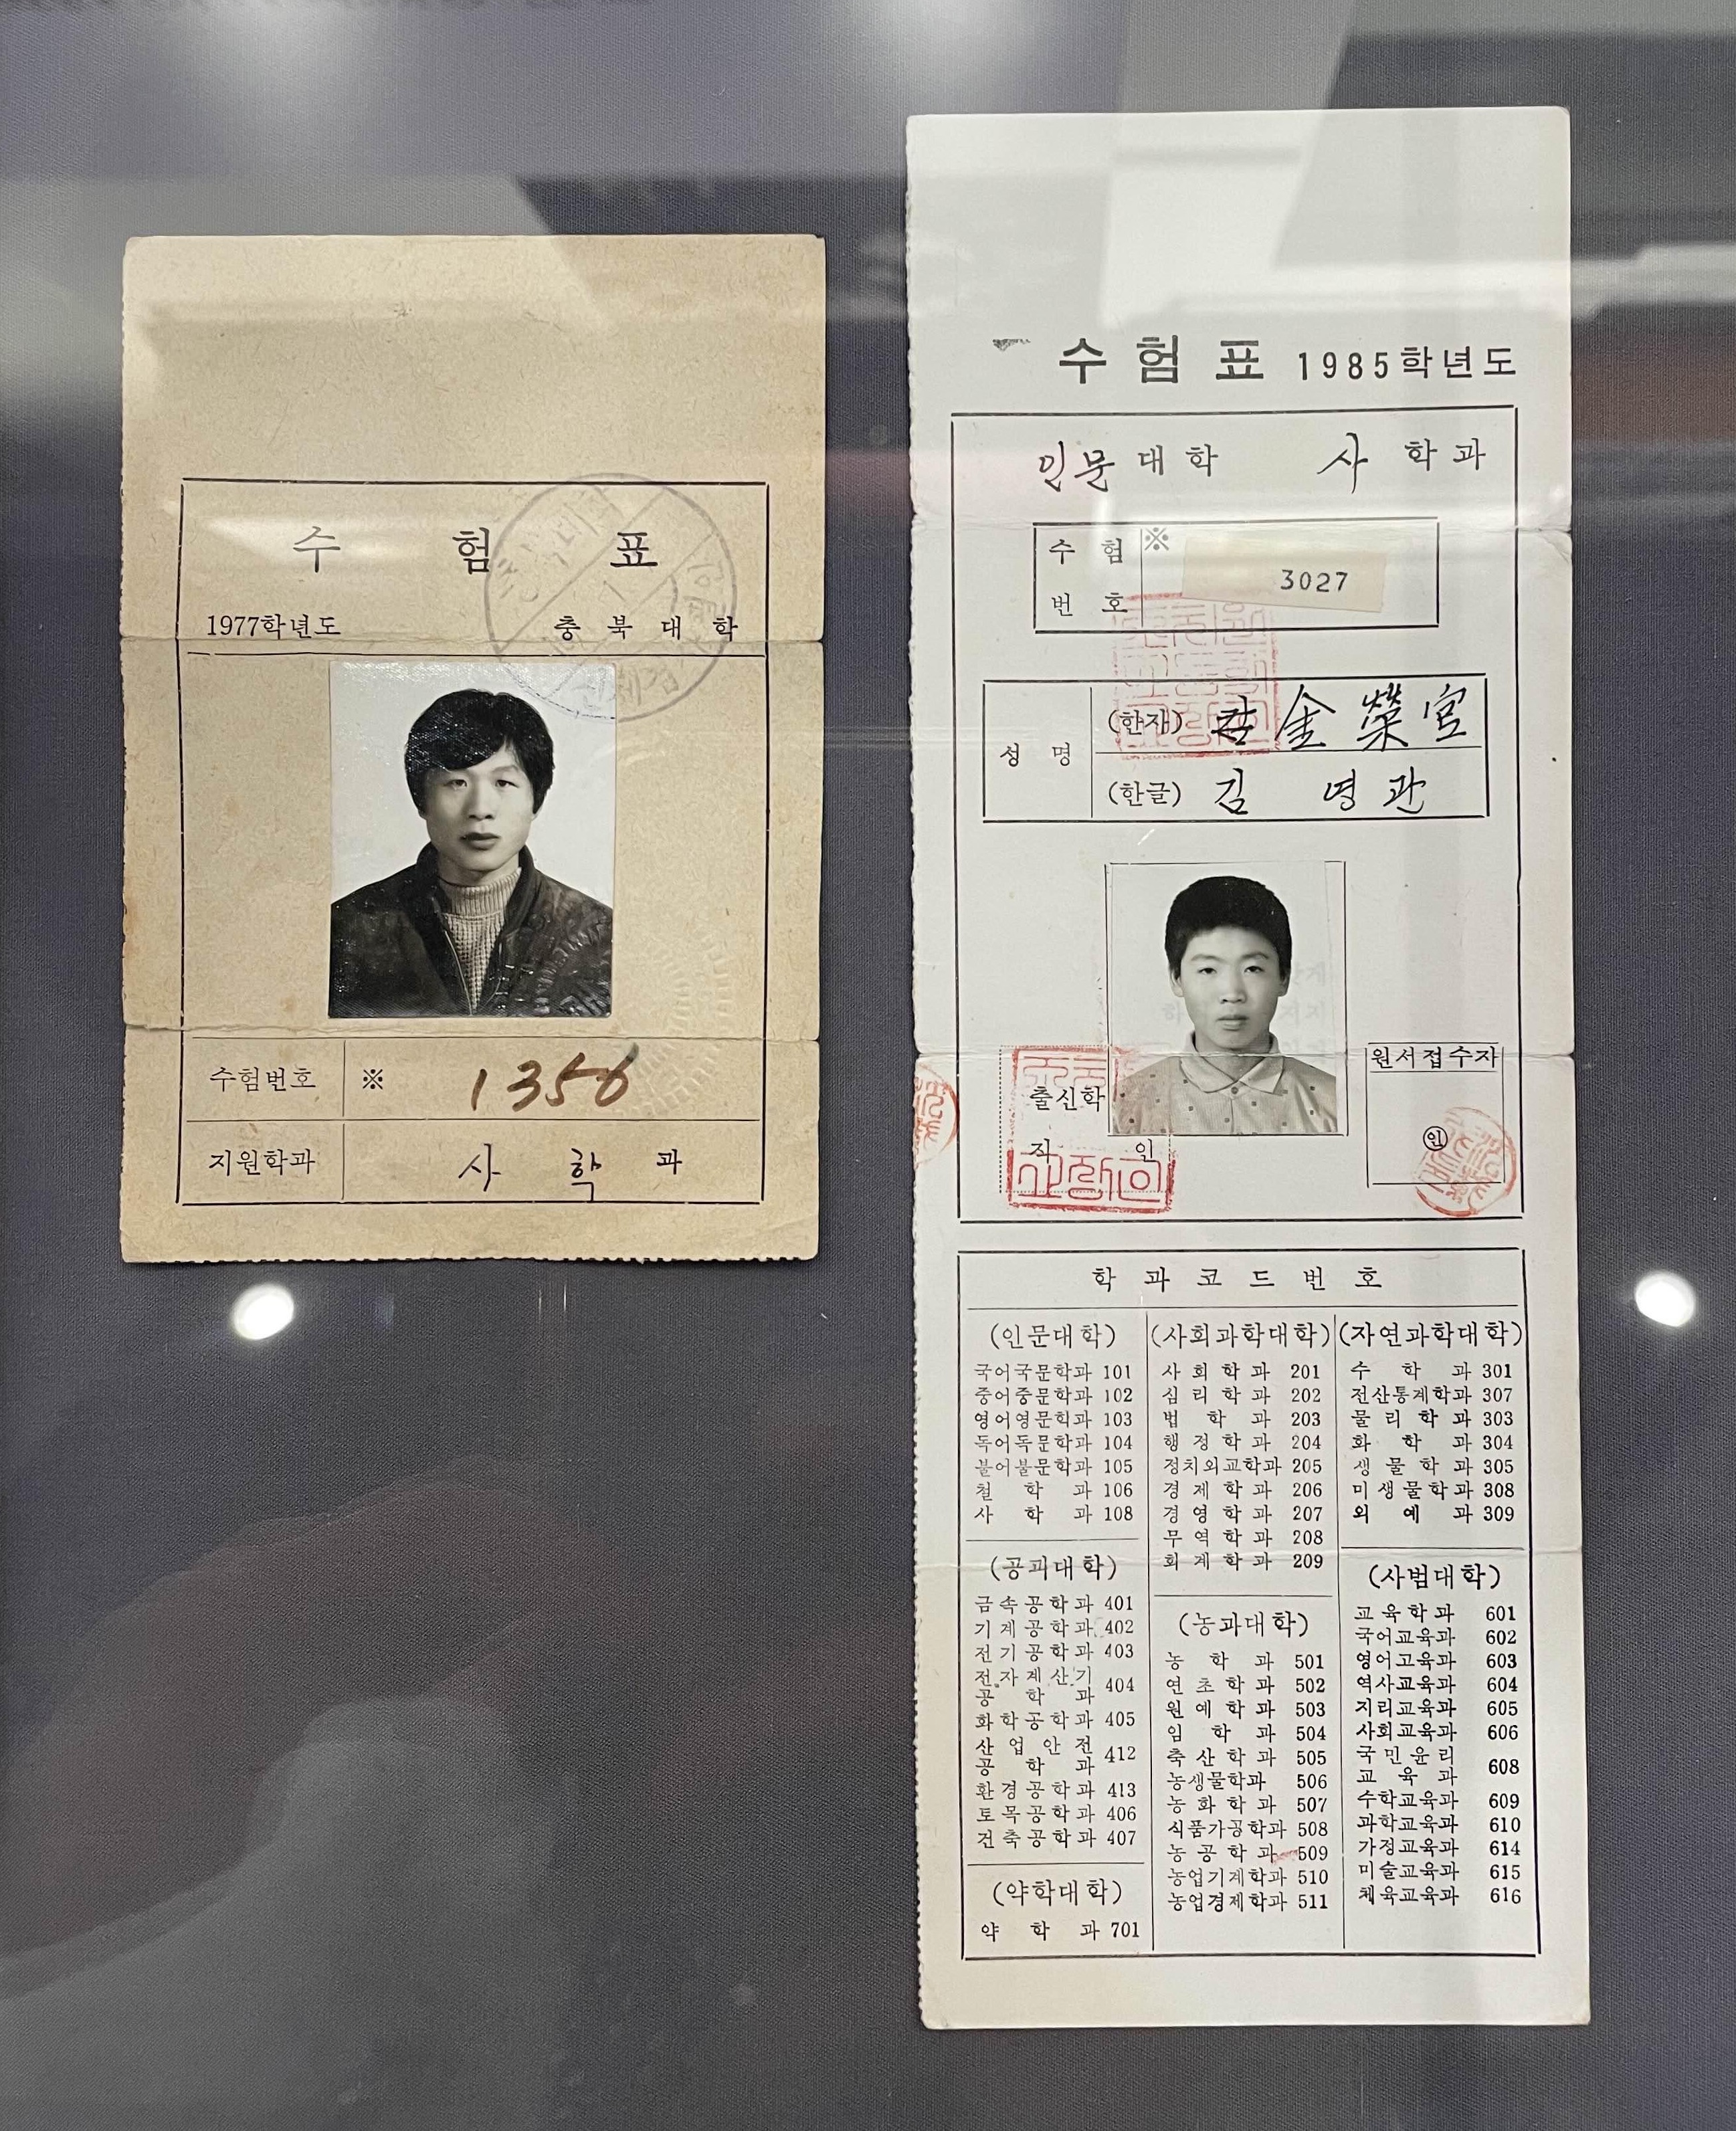 수 험 표
1977학년도 충 북 대 학
수험번호 ※ 1356
지원학과 사 학 과
수 험 표 1985학년도
인문 대 학 사 학 과
수 험 번 호 ※ 3027
성 명
(한자) 金 榮 官
(한글) 김 영 관
원서접수자
출신학
직 인
인
학 과 코 드 번 호
(인문대학)
국어국문학과 101
중어중문학과 102
영어영문학과 103
독어독문학과 104
불어불문학과 105
철 학 과 106
사 학 과 108
(공과대학)
금속공학과 401
기계공학과 402
전기공학과 403
전자계산기
공 학 과 404
화학공학과 405
산 업 안 전
공 학 과 412
환경공학과 413
토목공학과 406
건축공학과 407
(약학대학)
약 학 과 701
(사회과학대학)
사 회 학 과 201
심 리 학 과 202
법 학 과 203
행 정 학 과 204
정치외교학과 205
경 제 학 과 206
경 영 학 과 207
무 역 학 과 208
회 계 학 과 209
(농과대학)
농 학 과 501
연 초 학 과 502
원 예 학 과 503
임 학 과 504
축 산 학 과 505
농생물학과 506
농 화 학 과 507
식품가공학과 508
농 공 학 과 509
농업기계학과 510
농업경제학과 511
(자연과학대학)
수 학 과 301
전산통계학과 307
물 리 학 과 303
화 학 과 304
생 물 학 과 305
미생물학과 308
의 예 과 309
(사범대학)
교 육 학 과 601
국어교육과 602
영어교육과 603
역사교육과 604
지리교육과 605
사회교육과 606
국 민 윤 리
교 육 과 608
수학교육과 609
과학교육과 610
가정교육과 614
미술교육과 615
체육교육과 616